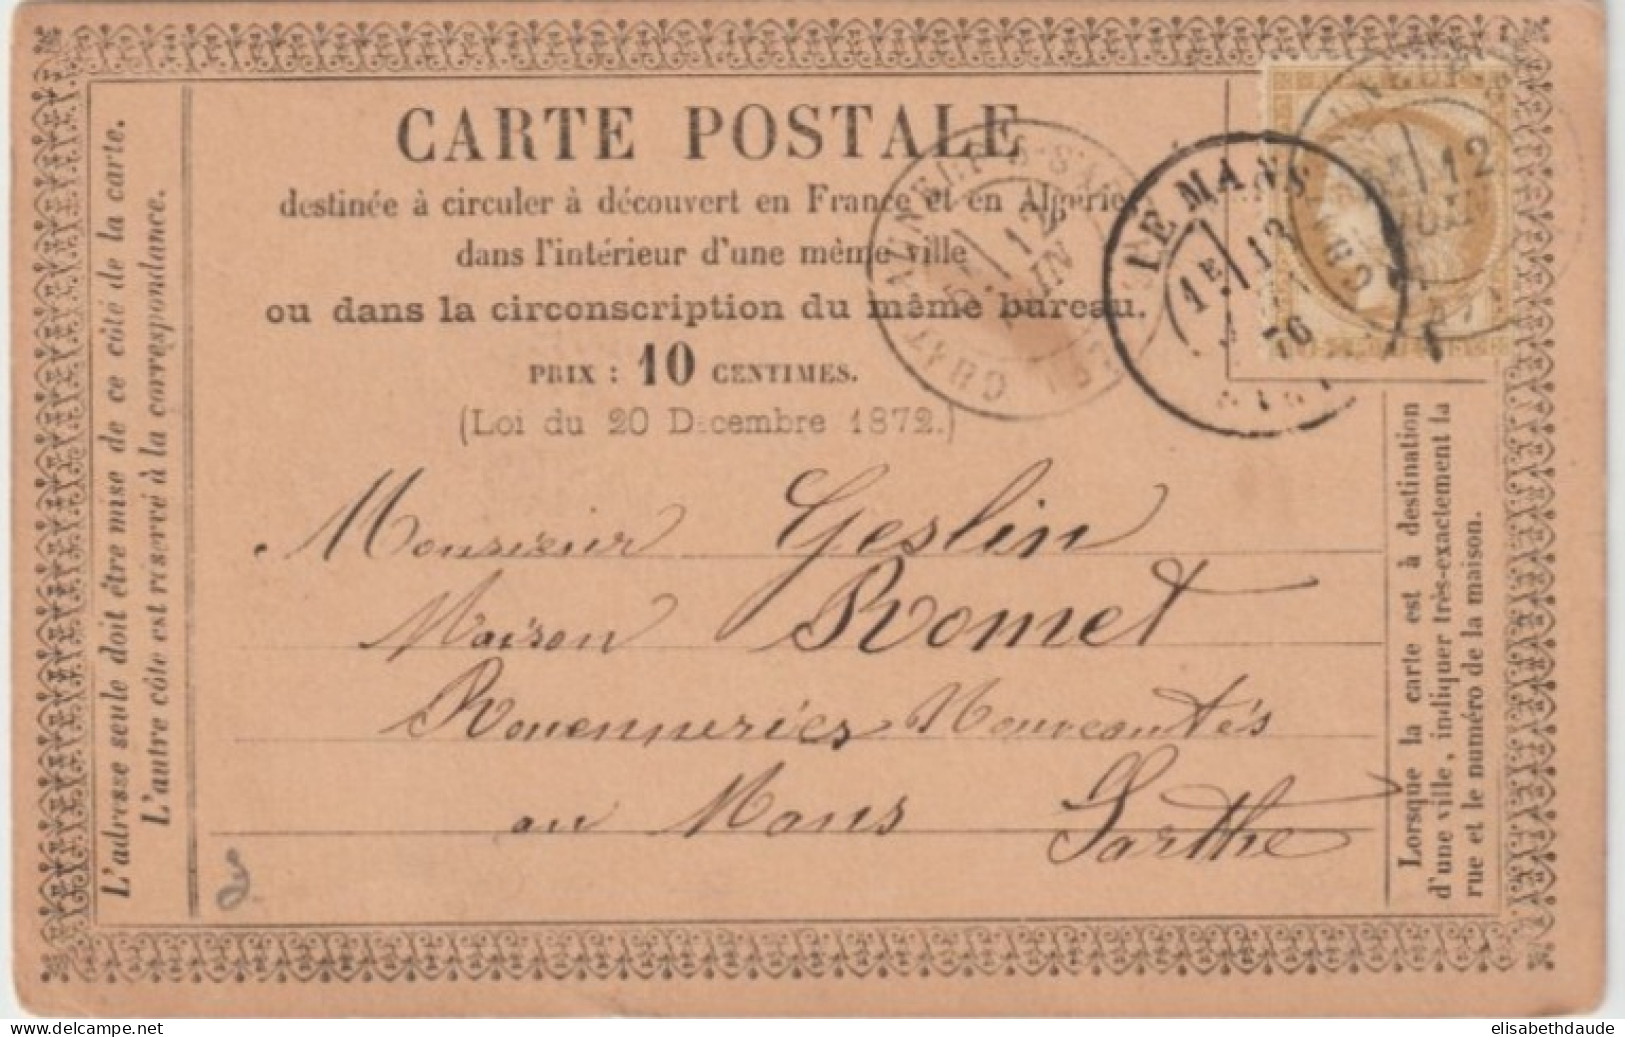 CARTE POSTALE
destinée à circuler à découvert en France et en Algérie
dans l'intérieur d'une même ville
ou dans la circonscription du même bureau.
PRIX : 10 CENTIMES.
(Loi du 20 Décembre 1872.)
L'adresse seule doit être mise de ce côté de la carte.
L'autre côté est réservé à la correspondance.
LE MANS
1E 13
76
12
JUIN
12
Monsieur Geslin
Maison Romet
Rouenneries Nouveautés
au Mans Sarthe
Lorsque la carte est à destination
d'une ville, indiquer très-exactement la
rue et le numéro de la maison.
www.delcampe.net
elisabethdaude